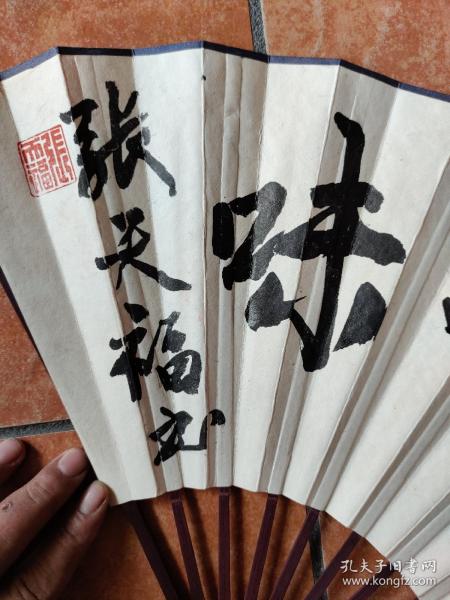 味
張天福书
張天福
孔夫子旧书网
www.kongfz.com